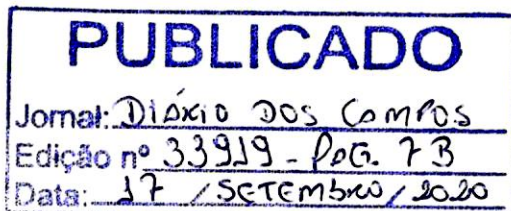 PUBLICADO
Jornal: DIÁRIO DOS CAMPOS
Edição nº 33919 - PÁG. 7B
Data: 17 / SETEMBRO / 2020